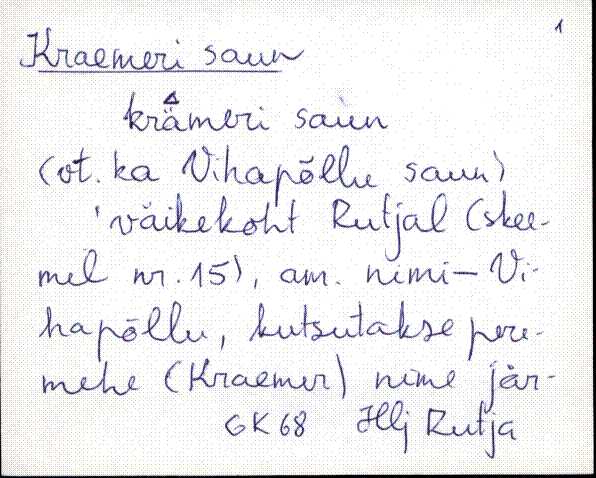 1
Kraemeri saun
krämeri saun
(vt. ka Vihapõllu saun)
'väikekoht Rutjal (skee-
mel nr. 15), am. nimi – Vi-
hapõllu, kutsutakse pere-
mehe (Kraemer) nime jär-
GK 68 Hlj Rutja